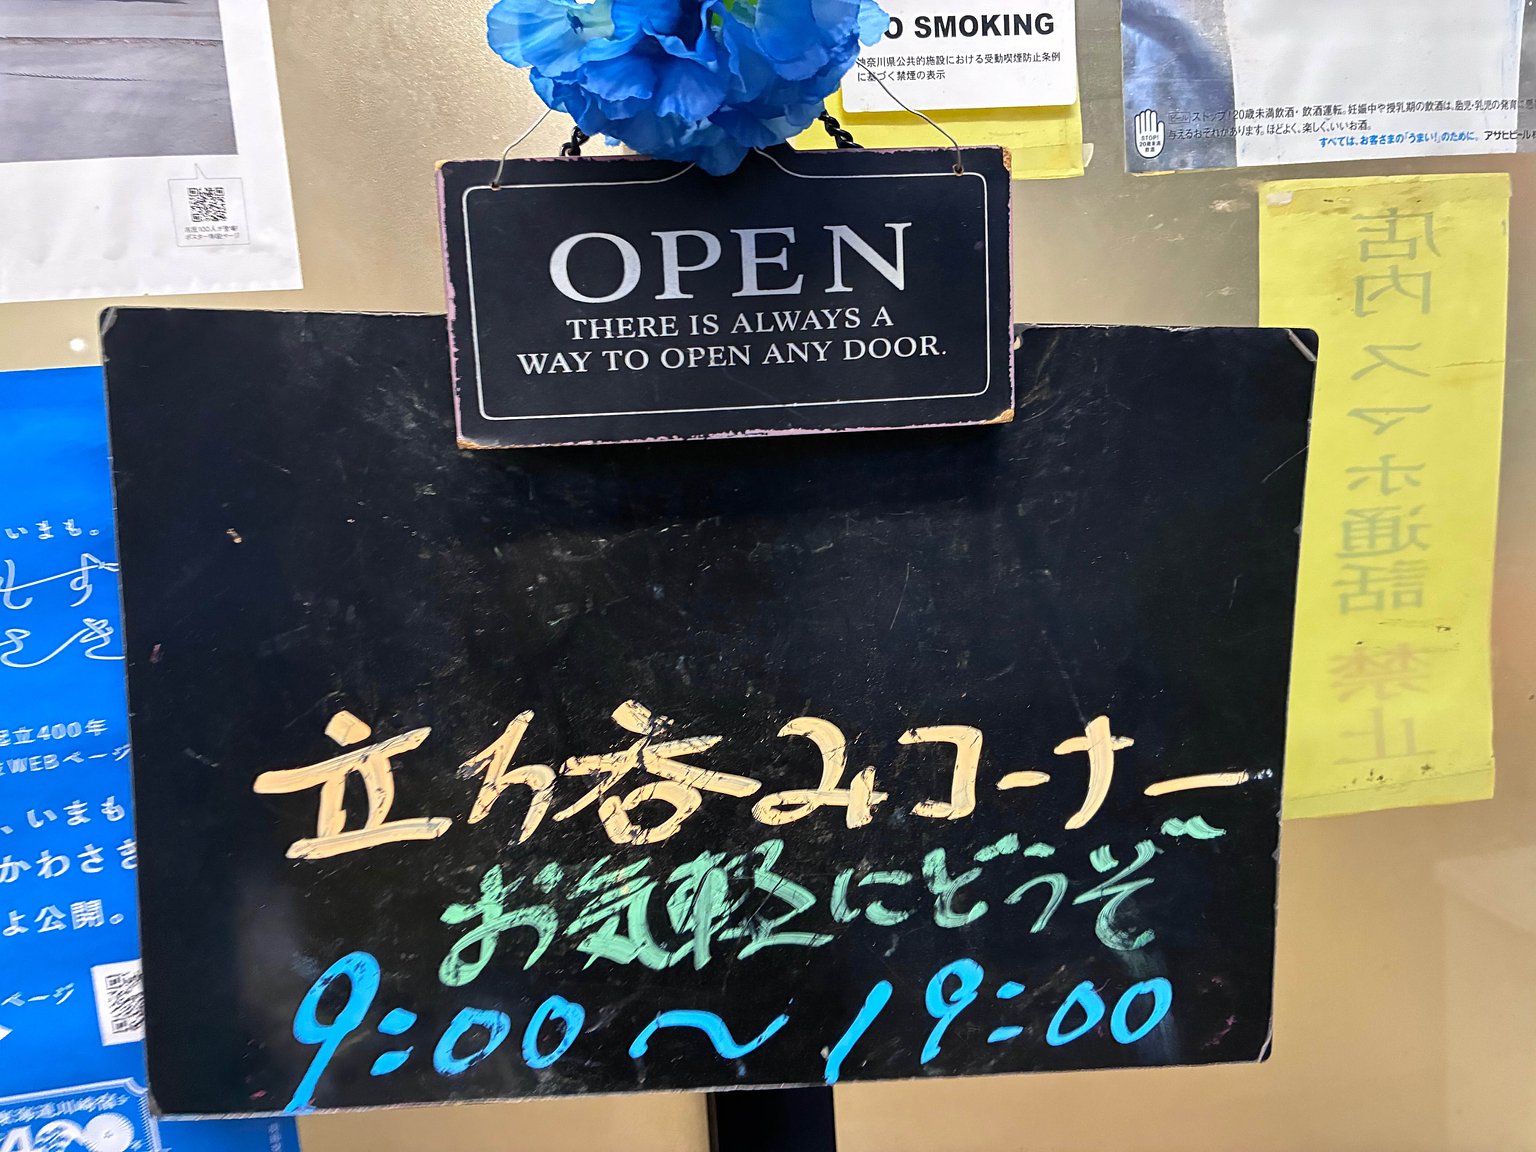 NO SMOKING
神奈川県公共的施設における受動喫煙防止条例
に基づく禁煙の表示
ストップ!20歳未満飲酒・飲酒運転。妊娠中や授乳期の飲酒は、胎児・乳児の発育に悪
与えるおそれがあります。ほどよく、楽しく、いいお酒。
すべては、お客さまの「うまい!」のために。 アサヒビール
STOP!
20歳未満
飲酒
OPEN
THERE IS ALWAYS A
WAY TO OPEN ANY DOOR.
店内スマホ通話禁止
いまも。
もず
さき
立400年
WEBページ
、いまも
かわさき
よ公開。
ページ
立ち呑みコーナー
お気軽にどうぞ
9:00〜19:00